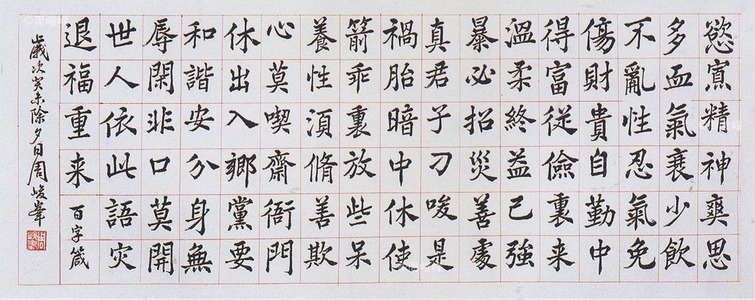 慾寡精神爽思
多血氣衰少飲
不亂性忍氣免
傷財貴自勤中
得富從儉裏来
溫柔終益己強
暴必招災善處
真君子刁唆是
禍胎暗中休使
箭乖裏放些呆
養性須脩善欺
心莫喫齋衙門
休出入鄉黨要
和諧安分身無
辱閑非口莫開
世人依此語灾
退福重来 百字箴
歲次癸未除夕日周峻峯